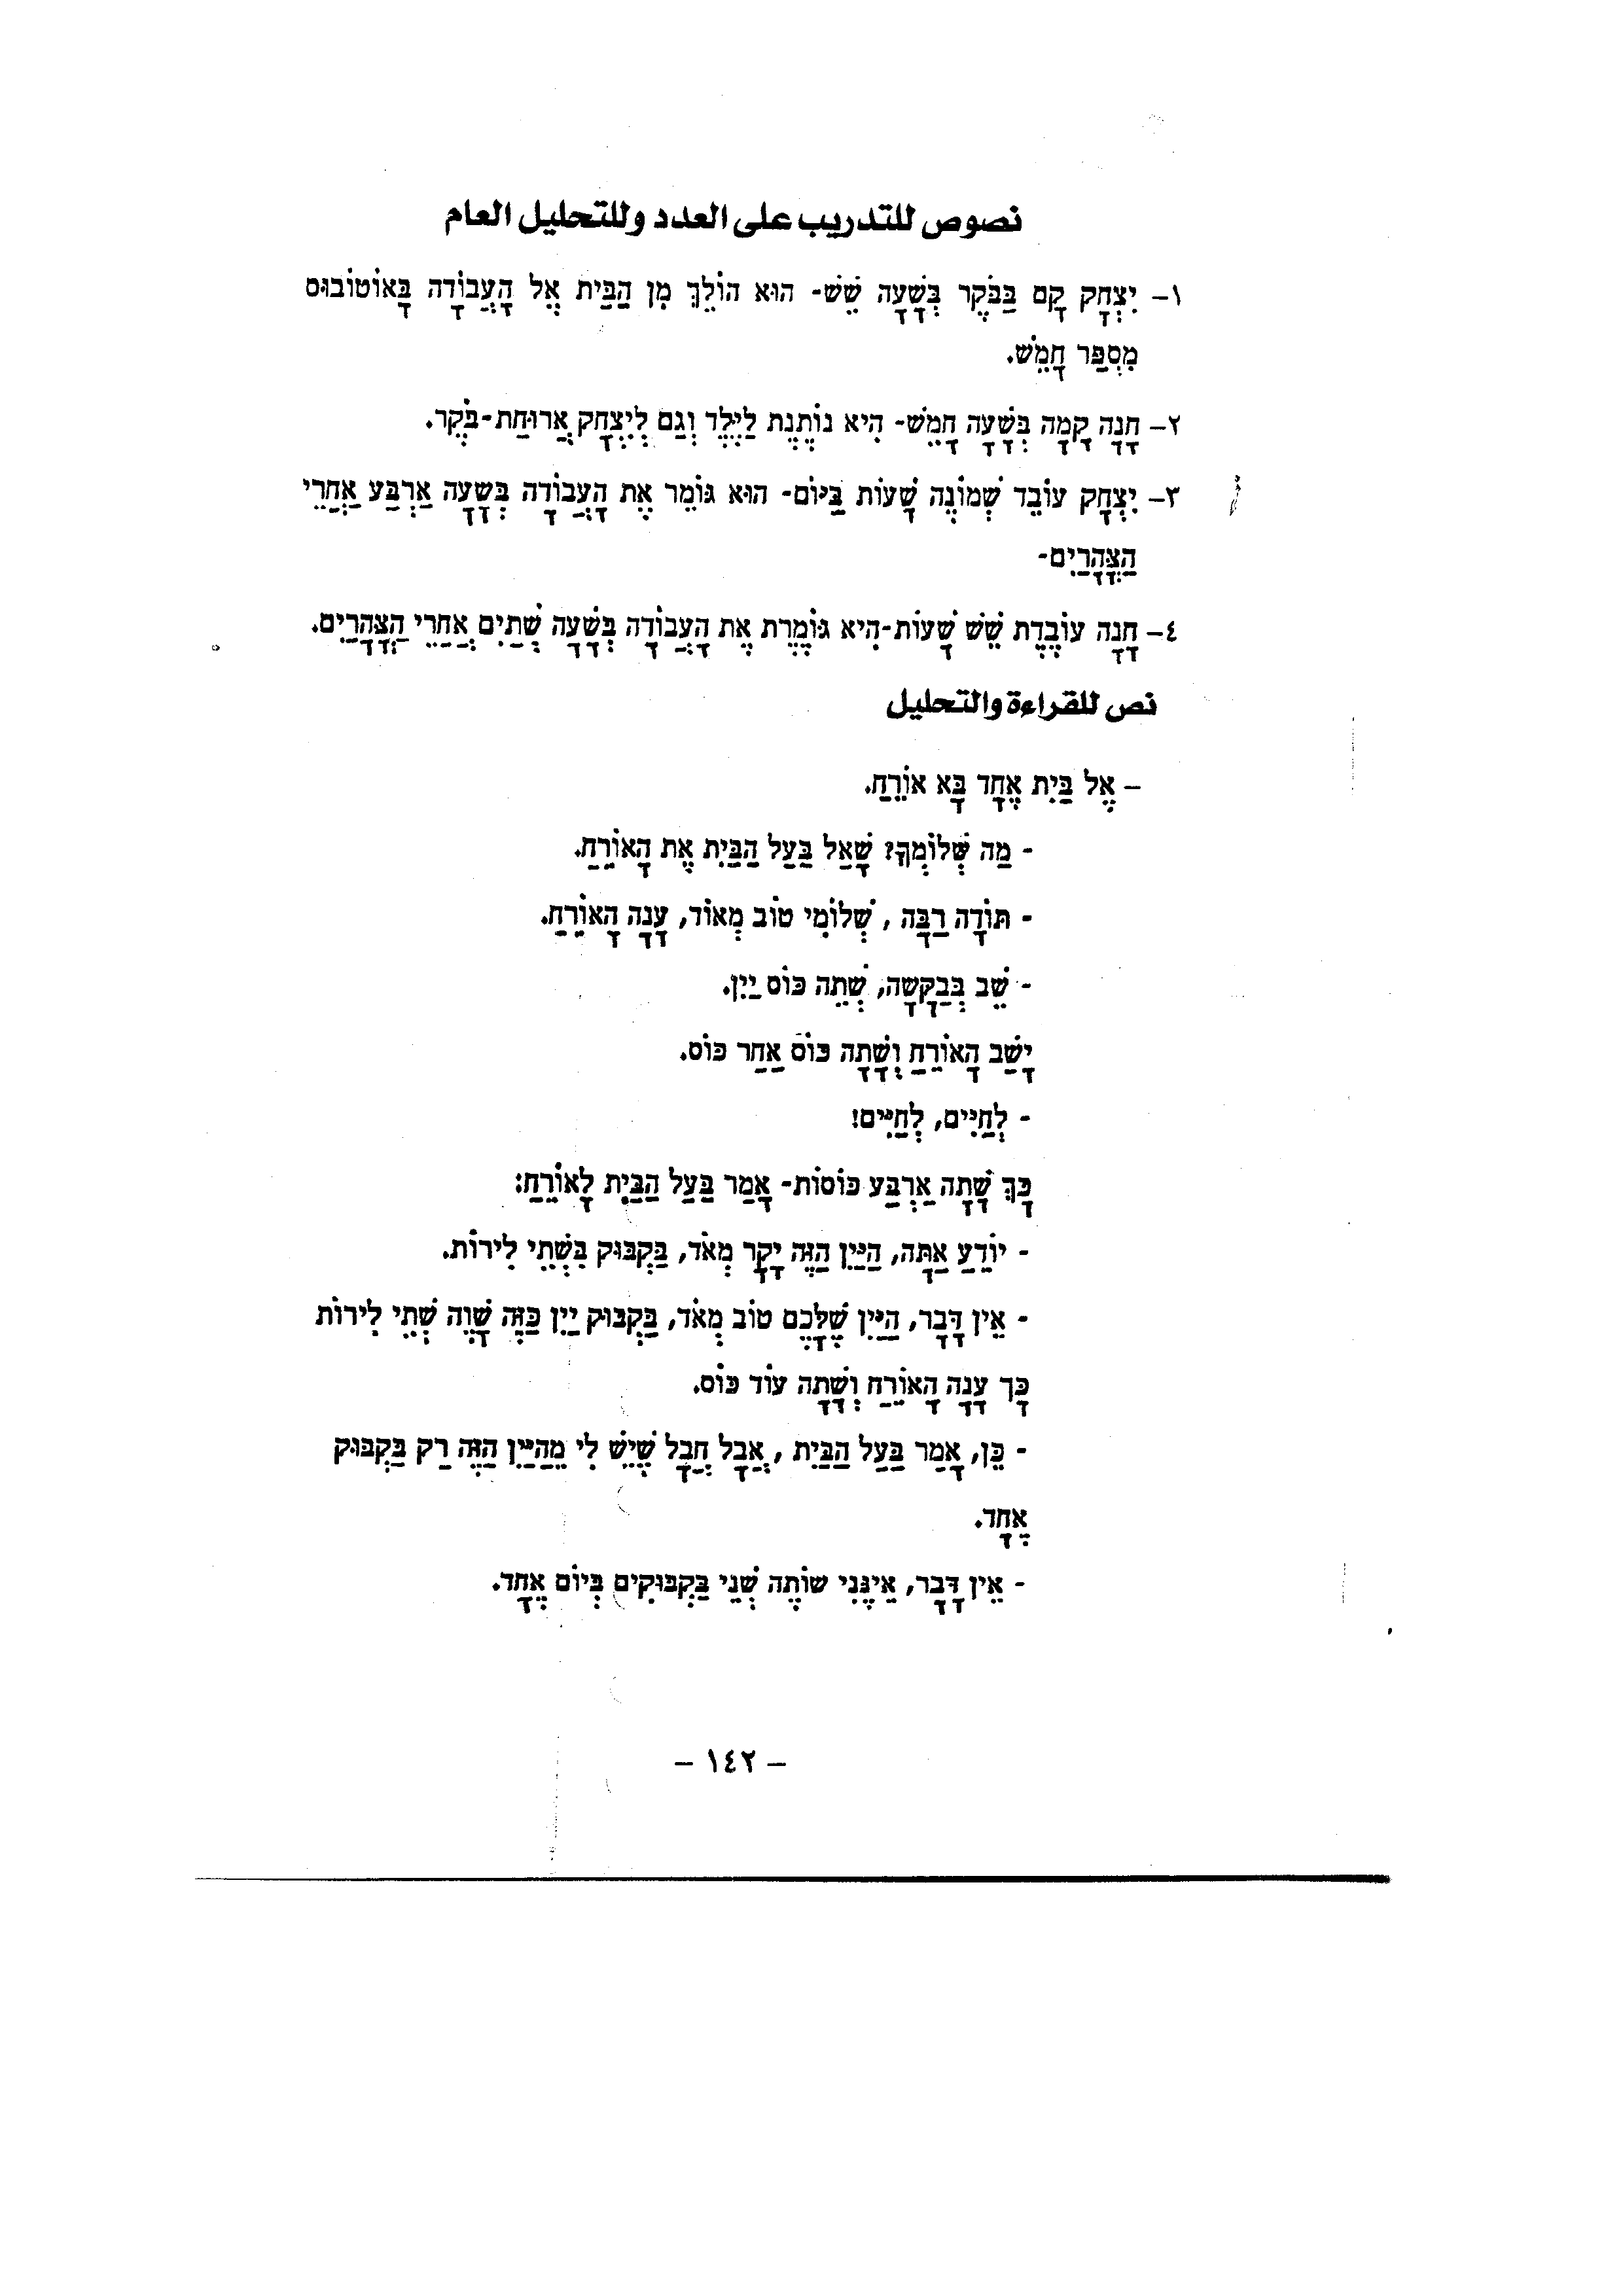 نصوص للتدريب على العدد وللتحليل العام
١- יִצְחָק קָם בַּבֹּקֶר בְּשָׁעָה שֵׁשׁ- הוּא הוֹלֵךְ מִן הַבַּיִת אֶל הָעֲבוֹדָה בָּאוֹטוֹבּוּס
מִסְפַּר חָמֵשׁ.
٢- חַנָּה קָמָה בְּשָׁעָה חָמֵשׁ- הִיא נוֹתֶנֶת לַיֶּלֶד וְגַם לְיִצְחָק אֲרוּחַת-בֹּקֶר.
٣- יִצְחָק עוֹבֵד שְׁמוֹנֶה שָׁעוֹת בַּיּוֹם- הוּא גּוֹמֵר אֶת הָעֲבוֹדָה בְּשָׁעָה אַרְבַּע אַחֲרֵי
הַצָּהֳרַיִם-
٤- חַנָּה עוֹבֶדֶת שֵׁשׁ שָׁעוֹת-הִיא גּוֹמֶרֶת אֶת הָעֲבוֹדָה בְּשָׁעָה שְׁתַּיִם אַחֲרֵי הַצָּהֳרַיִם.
نص للقراءة والتحليل
- אֶל בַּיִת אֶחָד בָּא אוֹרֵחַ.
- מַה שְּׁלוֹמְךָ? שָׁאַל בַּעַל הַבַּיִת אֶת הָאוֹרֵחַ.
- תּוֹדָה רַבָּה , שְׁלוֹמִי טוֹב מְאוֹד, עָנָה הָאוֹרֵחַ.
- שֵׁב בְּבַקָּשָׁה, שְׁתֵה כּוֹס יַיִן.
יָשַׁב הָאוֹרֵחַ וְשָׁתָה כּוֹס אַחַר כּוֹס.
- לְחַיִּים, לְחַיִּים!
כָּךְ שָׁתָה אַרְבַּע כּוֹסוֹת- אָמַר בַּעַל הַבַּיִת לָאוֹרֵחַ:
- יוֹדֵעַ אַתָּה, הַיַּיִן הַזֶּה יָקָר מְאֹד, בַּקְבּוּק בִּשְׁתֵּי לִירוֹת.
- אֵין דָּבָר, הַיַּיִן שֶׁלָּכֶם טוֹב מְאֹד, בַּקְבּוּק יַיִן כָּזֶה שָׁוֶה שְׁתֵּי לִירוֹת
כָּךְ עָנָה הָאוֹרֵחַ וְשָׁתָה עוֹד כּוֹס.
- כֵּן, אָמַר בַּעַל הַבַּיִת , אֲבָל חֲבָל שֶׁיֵּשׁ לִי מֵהַיַּיִן הַזֶּה רַק בַּקְבּוּק
אֶחָד.
- אֵין דָּבָר, אֵינֶנִּי שׁוֹתֶה שְׁנֵי בַּקְבּוּקִים בְּיוֹם אֶחָד.
- ١٤٢ -